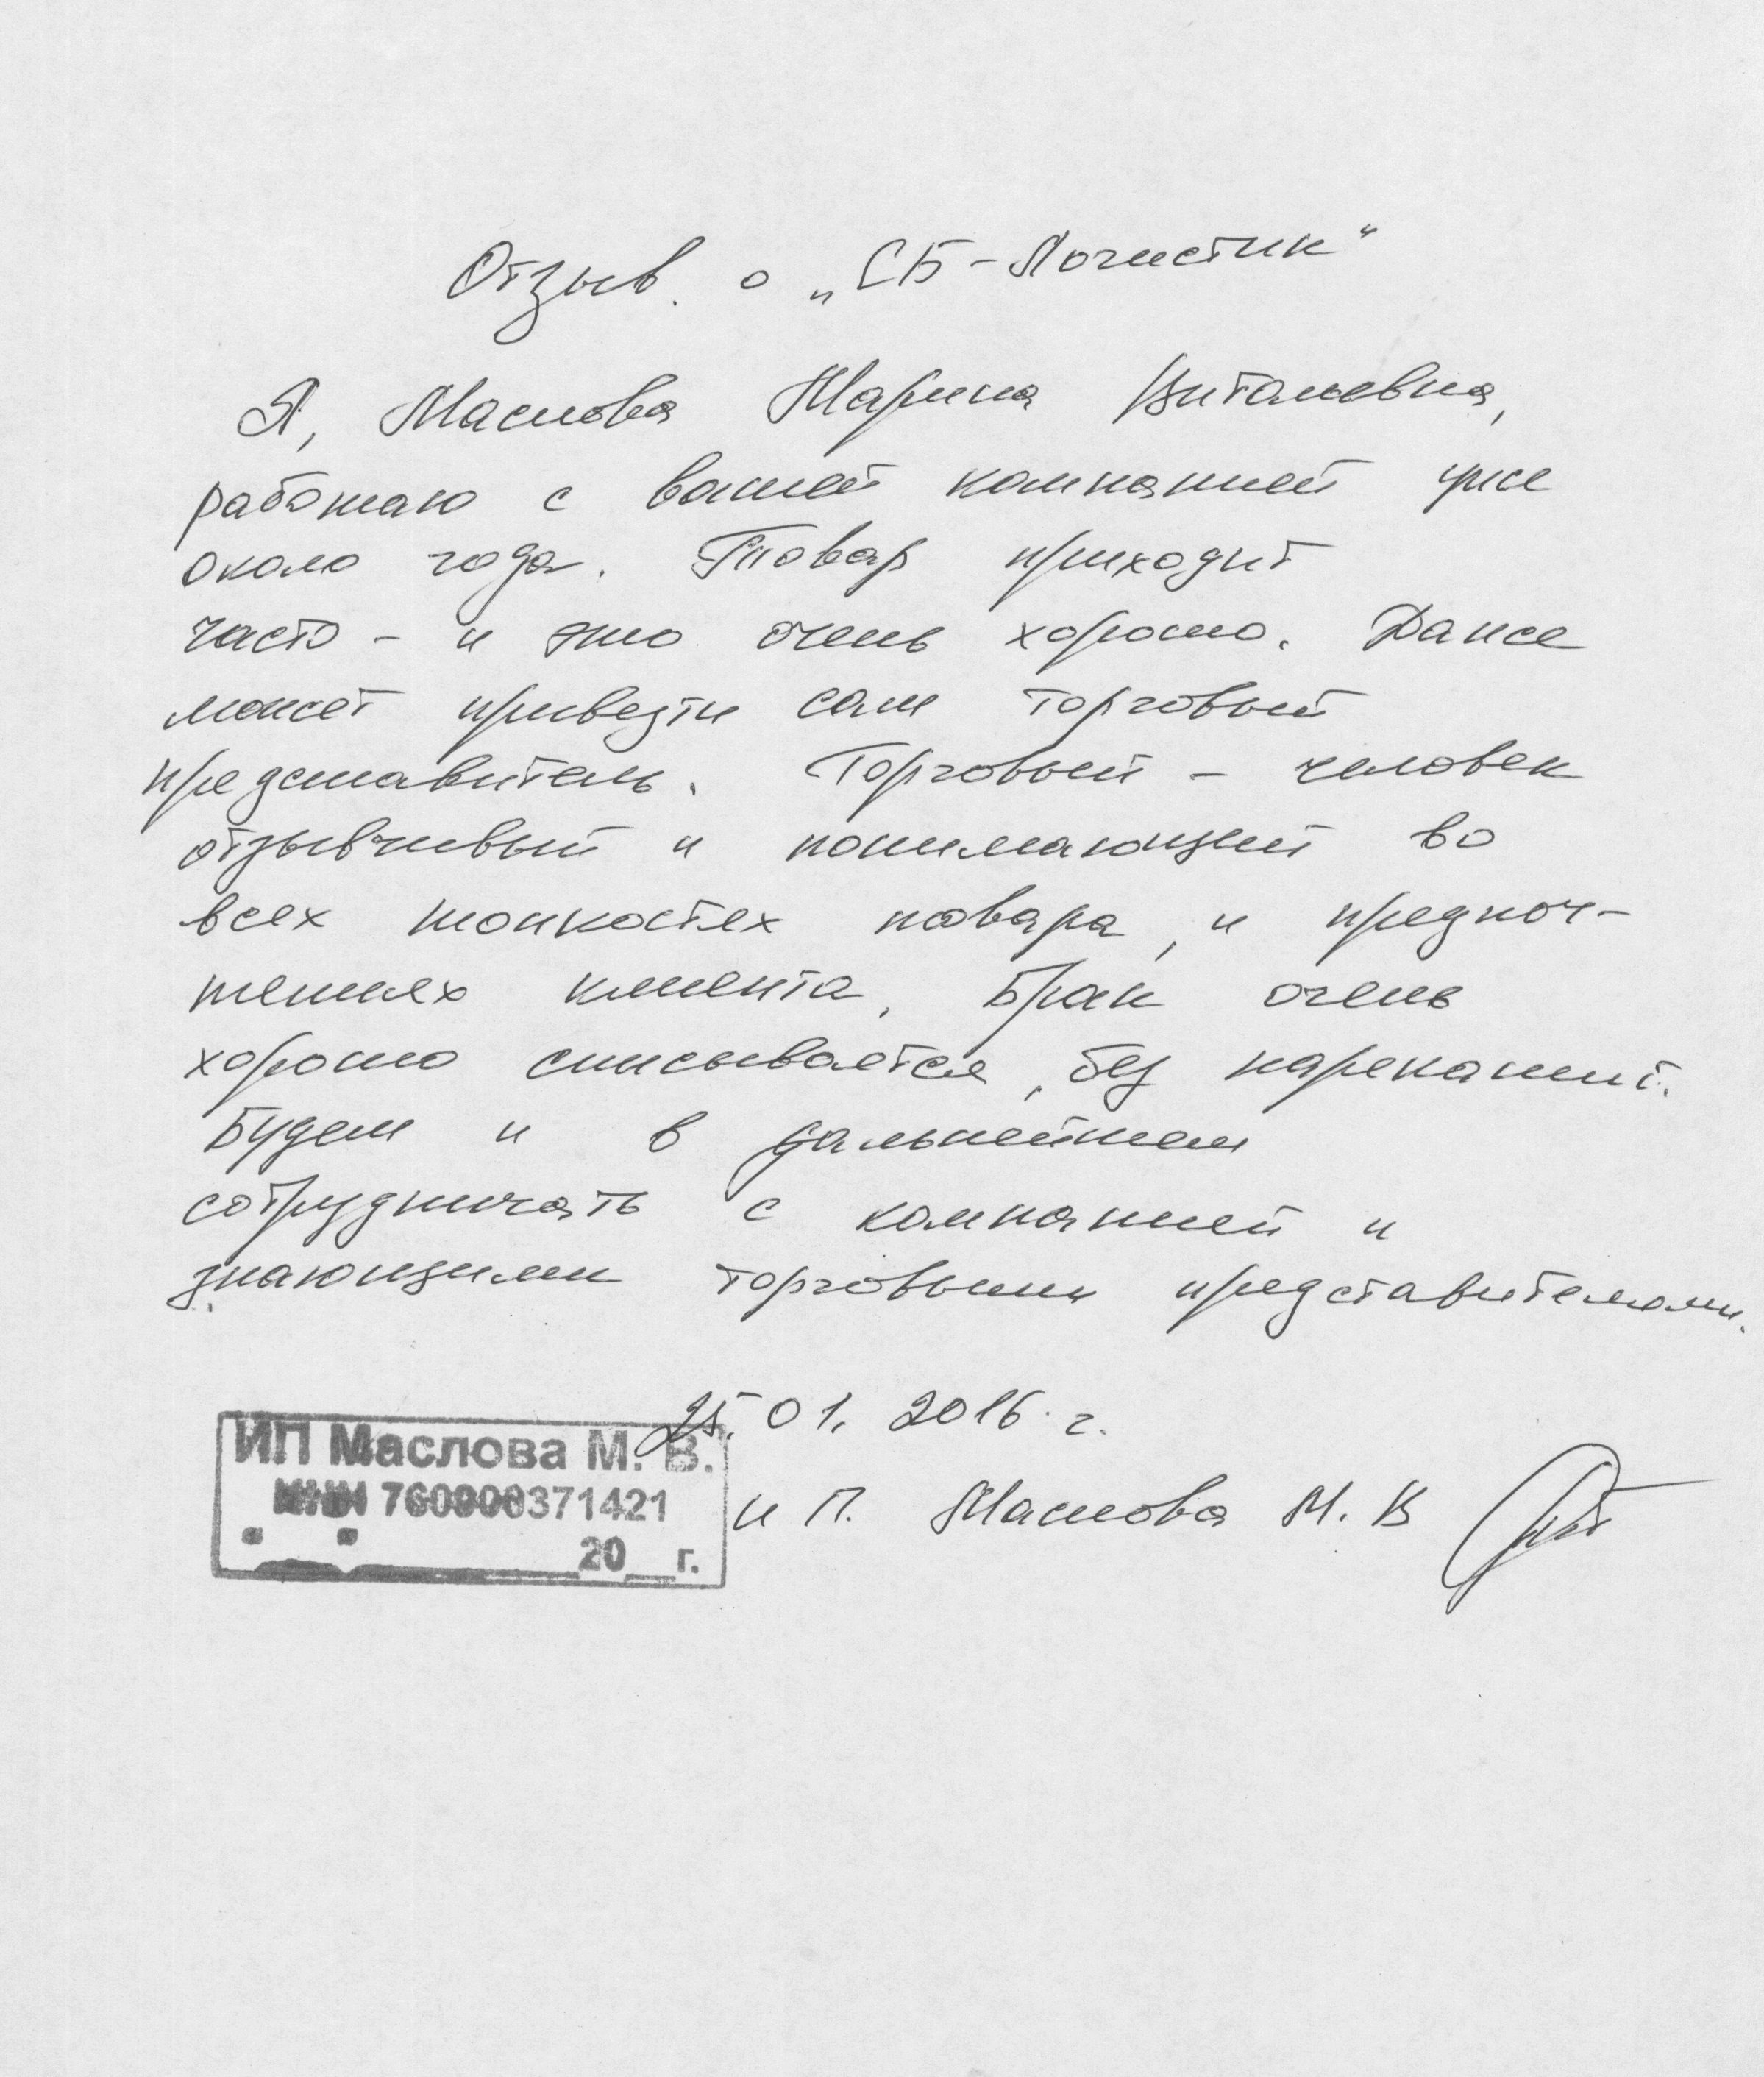 Отзыв о „СБ-Логистик“
Я, Маслова Марина Витальевна,
работаю с вашей компанией уже
около года. Товар приходит
часто - и это очень хорошо. Даже
может привезти сам торговый
представитель. Торговый - человек
отзывчивый и понимающий во
всех тонкостях товара, и предпоч-
тениях клиента. Брак очень
хорошо списывается, без нареканий.
Будем и в дальнейшем
сотрудничать с компанией и
знающими торговыми представителями.
25.01.2016 г.
ИП Маслова М. В.
ИНН 760900371421
20__г.
И П. Маслова М. В